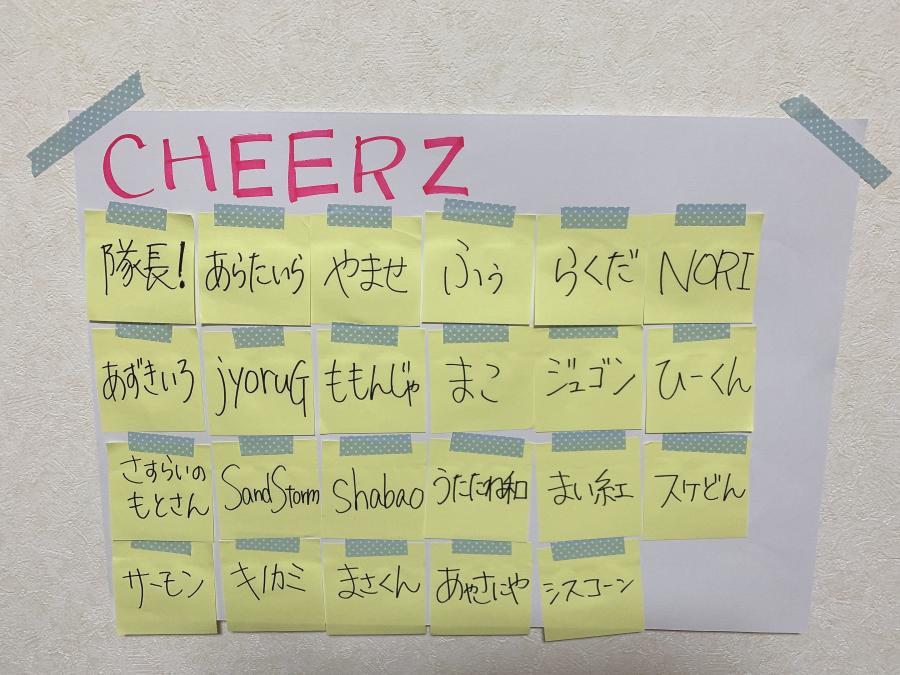 CHEERZ
隊長!
あらたいら
やませ
ふぅ
らくだ
NORI
あずきいろ
jyoruG
ももんじゃ
まこ
ジュゴン
ひーくん
さすらいの
もとさん
SandStorm
Shabao
うたたね和
まい紅
スケどん
サーモン
キノカミ
まさくん
あやさにや
シスコーン